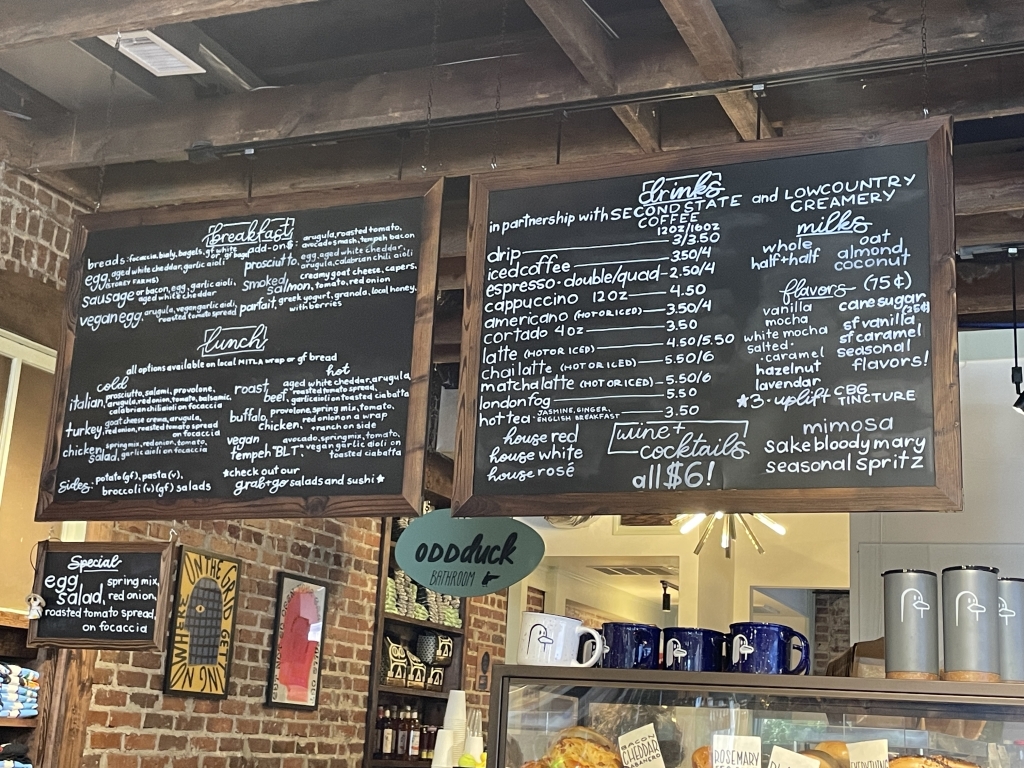 breakfast
breads: focaccia, bialy, bagels, gf white or gf bagel
egg, aged white cheddar, garlic aioli
(STOREY FARMS)
sausage or bacon, egg, garlic aioli,
aged white cheddar
vegan egg, arugula, vegan garlic aioli,
roasted tomato spread
add-ons: arugula, roasted tomato,
avocado smash, tempeh bacon
prosciutto, egg, aged white cheddar,
arugula, calabrian chili aioli
smoked salmon, creamy goat cheese, capers,
tomato, red onion
parfait, greek yogurt, granola, local honey,
with berries
lunch
all options available on local MITLA wrap or gf bread
cold
italian, prosciutto, salami, provolone,
arugula, red onion, tomato, balsamic,
calabrian chili aioli on focaccia
turkey, goat cheese, arugula,
red onion, roasted tomato spread
on focaccia
chicken salad, spring mix, red onion, tomato,
garlic aioli on focaccia
hot
roast beef, aged white cheddar, arugula,
roasted tomato spread,
garlic aioli on toasted ciabatta
buffalo chicken, provolone, spring mix, tomato,
red onion on a wrap
+ranch on side
vegan tempeh "BLT", avocado, spring mix, tomato,
vegan garlic aioli on
toasted ciabatta
sides: potato (gf), pasta (v),
broccoli (v)(gf) salads
*check out our
grab+go salads and sushi*
drinks
in partnership with SECOND STATE COFFEE and LOWCOUNTRY CREAMERY
12oz/16oz
drip 3/3.50
iced coffee 3.50/4
espresso - double/quad 2.50/4
cappuccino 12oz 4.50
americano (HOT OR ICED) 3.50/4
cortado 4oz 3.50
latte (HOT OR ICED) 4.50/5.50
chai latte (HOT OR ICED) 5.50/6
matcha latte (HOT OR ICED) 5.50/6
london fog 5.50
hot tea - JASMINE, GINGER, ENGLISH BREAKFAST 3.50
milks
whole
half+half
oat
almond
coconut
flavors (75¢)
vanilla
mocha
white mocha
salted caramel
hazelnut
lavendar
cane sugar
(25¢)
sf vanilla
sf caramel
seasonal
flavors!
*3- uplift CBG
TINCTURE
house red
house white
house rosé
wine+
cocktails
all $6!
mimosa
sake bloody mary
seasonal spritz
Special
egg salad, spring mix,
red onion,
roasted tomato spread,
on focaccia
ODDduck
BATHROOM
ON THE GRID GETTING NOWHERE
BACON
CHEDDAR
HABANERO
ROSEMARY
EVERYTHING